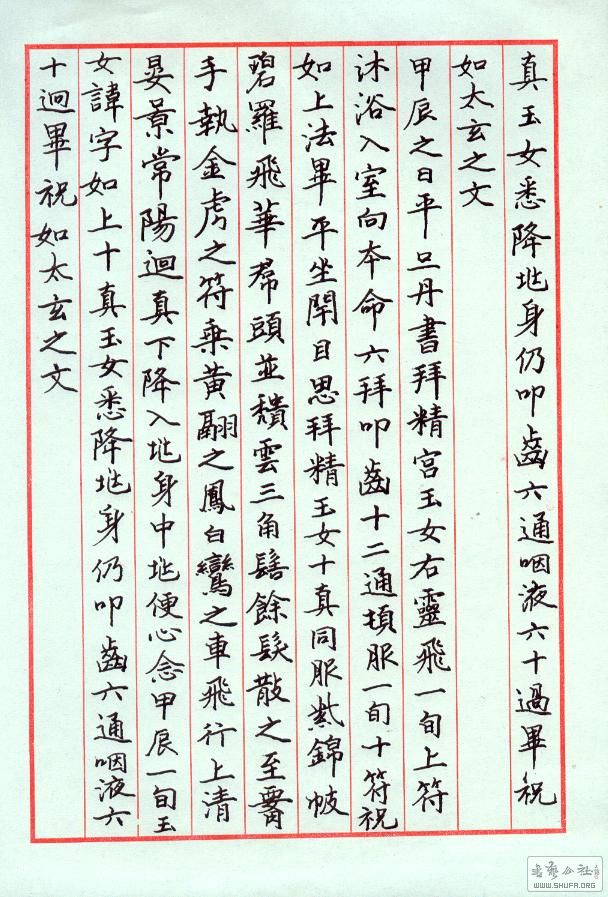 真玉女悉降地身仍叩齒六通咽液六十過畢祝
如太玄之文
甲辰之日平旦丹書拜精宮玉女右靈飛一旬上符
沐浴入室向本命六拜叩齒十二通頓服一旬十符祝
如上法畢平坐閉目思拜精玉女十真同服紫錦帔
碧羅飛華帬頭並穨雲三角髻餘髮散之至䯗
手執金虎之符乗黄翮之鳳白鸞之車飛行上清
晏景常陽迴真下降入地身中地便心念甲辰一旬玉
女諱字如上十真玉女悉降地身仍叩齒六通咽液六
十迴畢祝如太玄之文
书艺公社
WWW.SHUFA.ORG